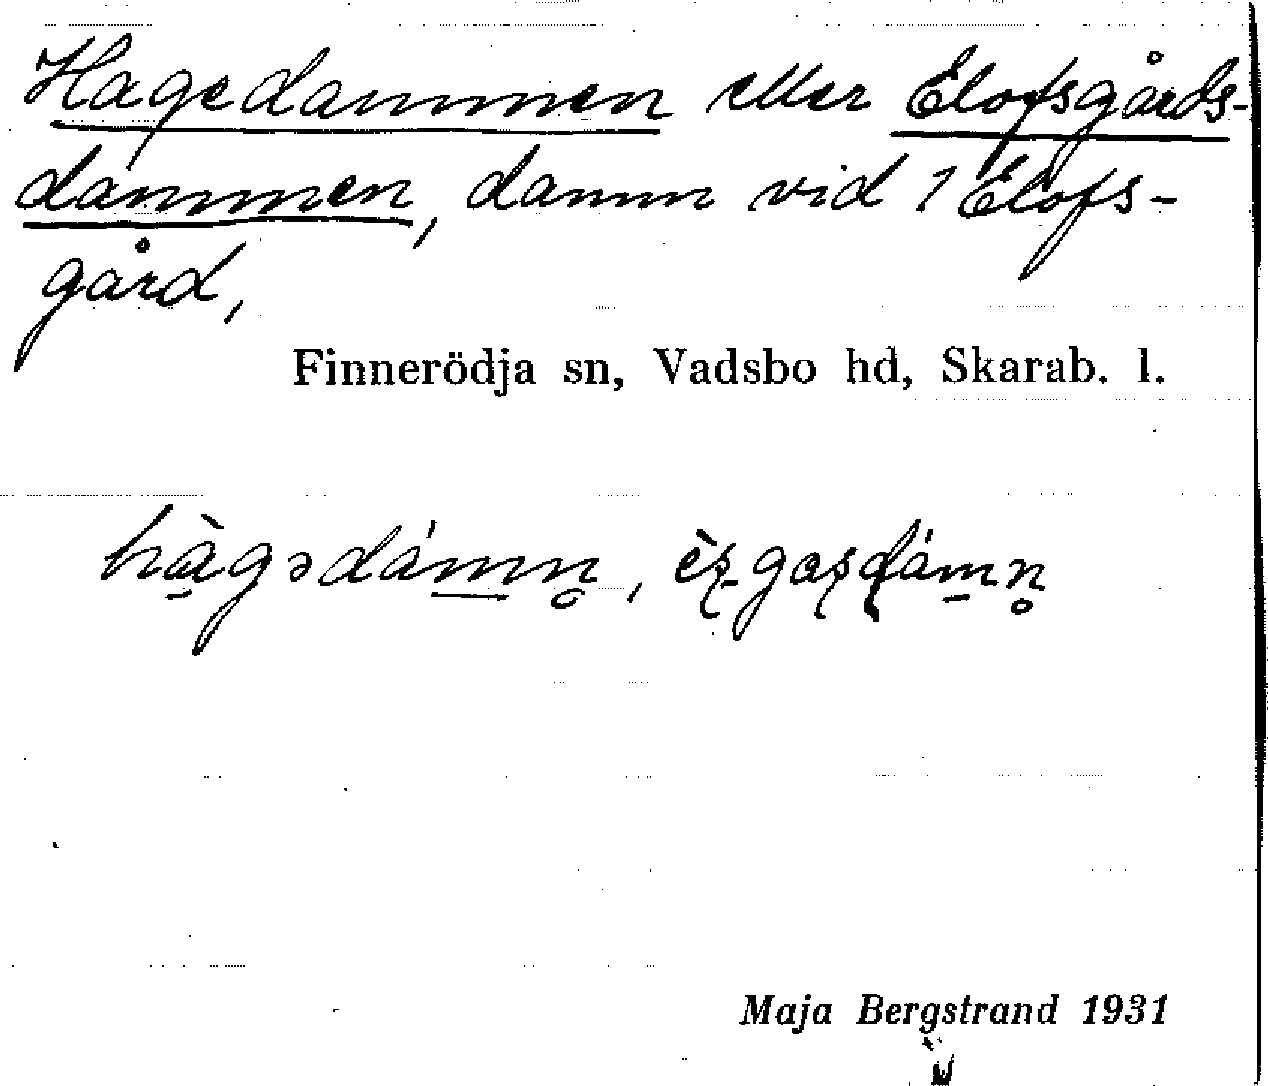 Hagedammen eller Elofsgårds-
dammen, damm vid 1 Elofs-
gård,
Finnerödja sn, Vadsbo hd, Skarab. l.
hàgədámn̥,
Maja Bergstrand 1931